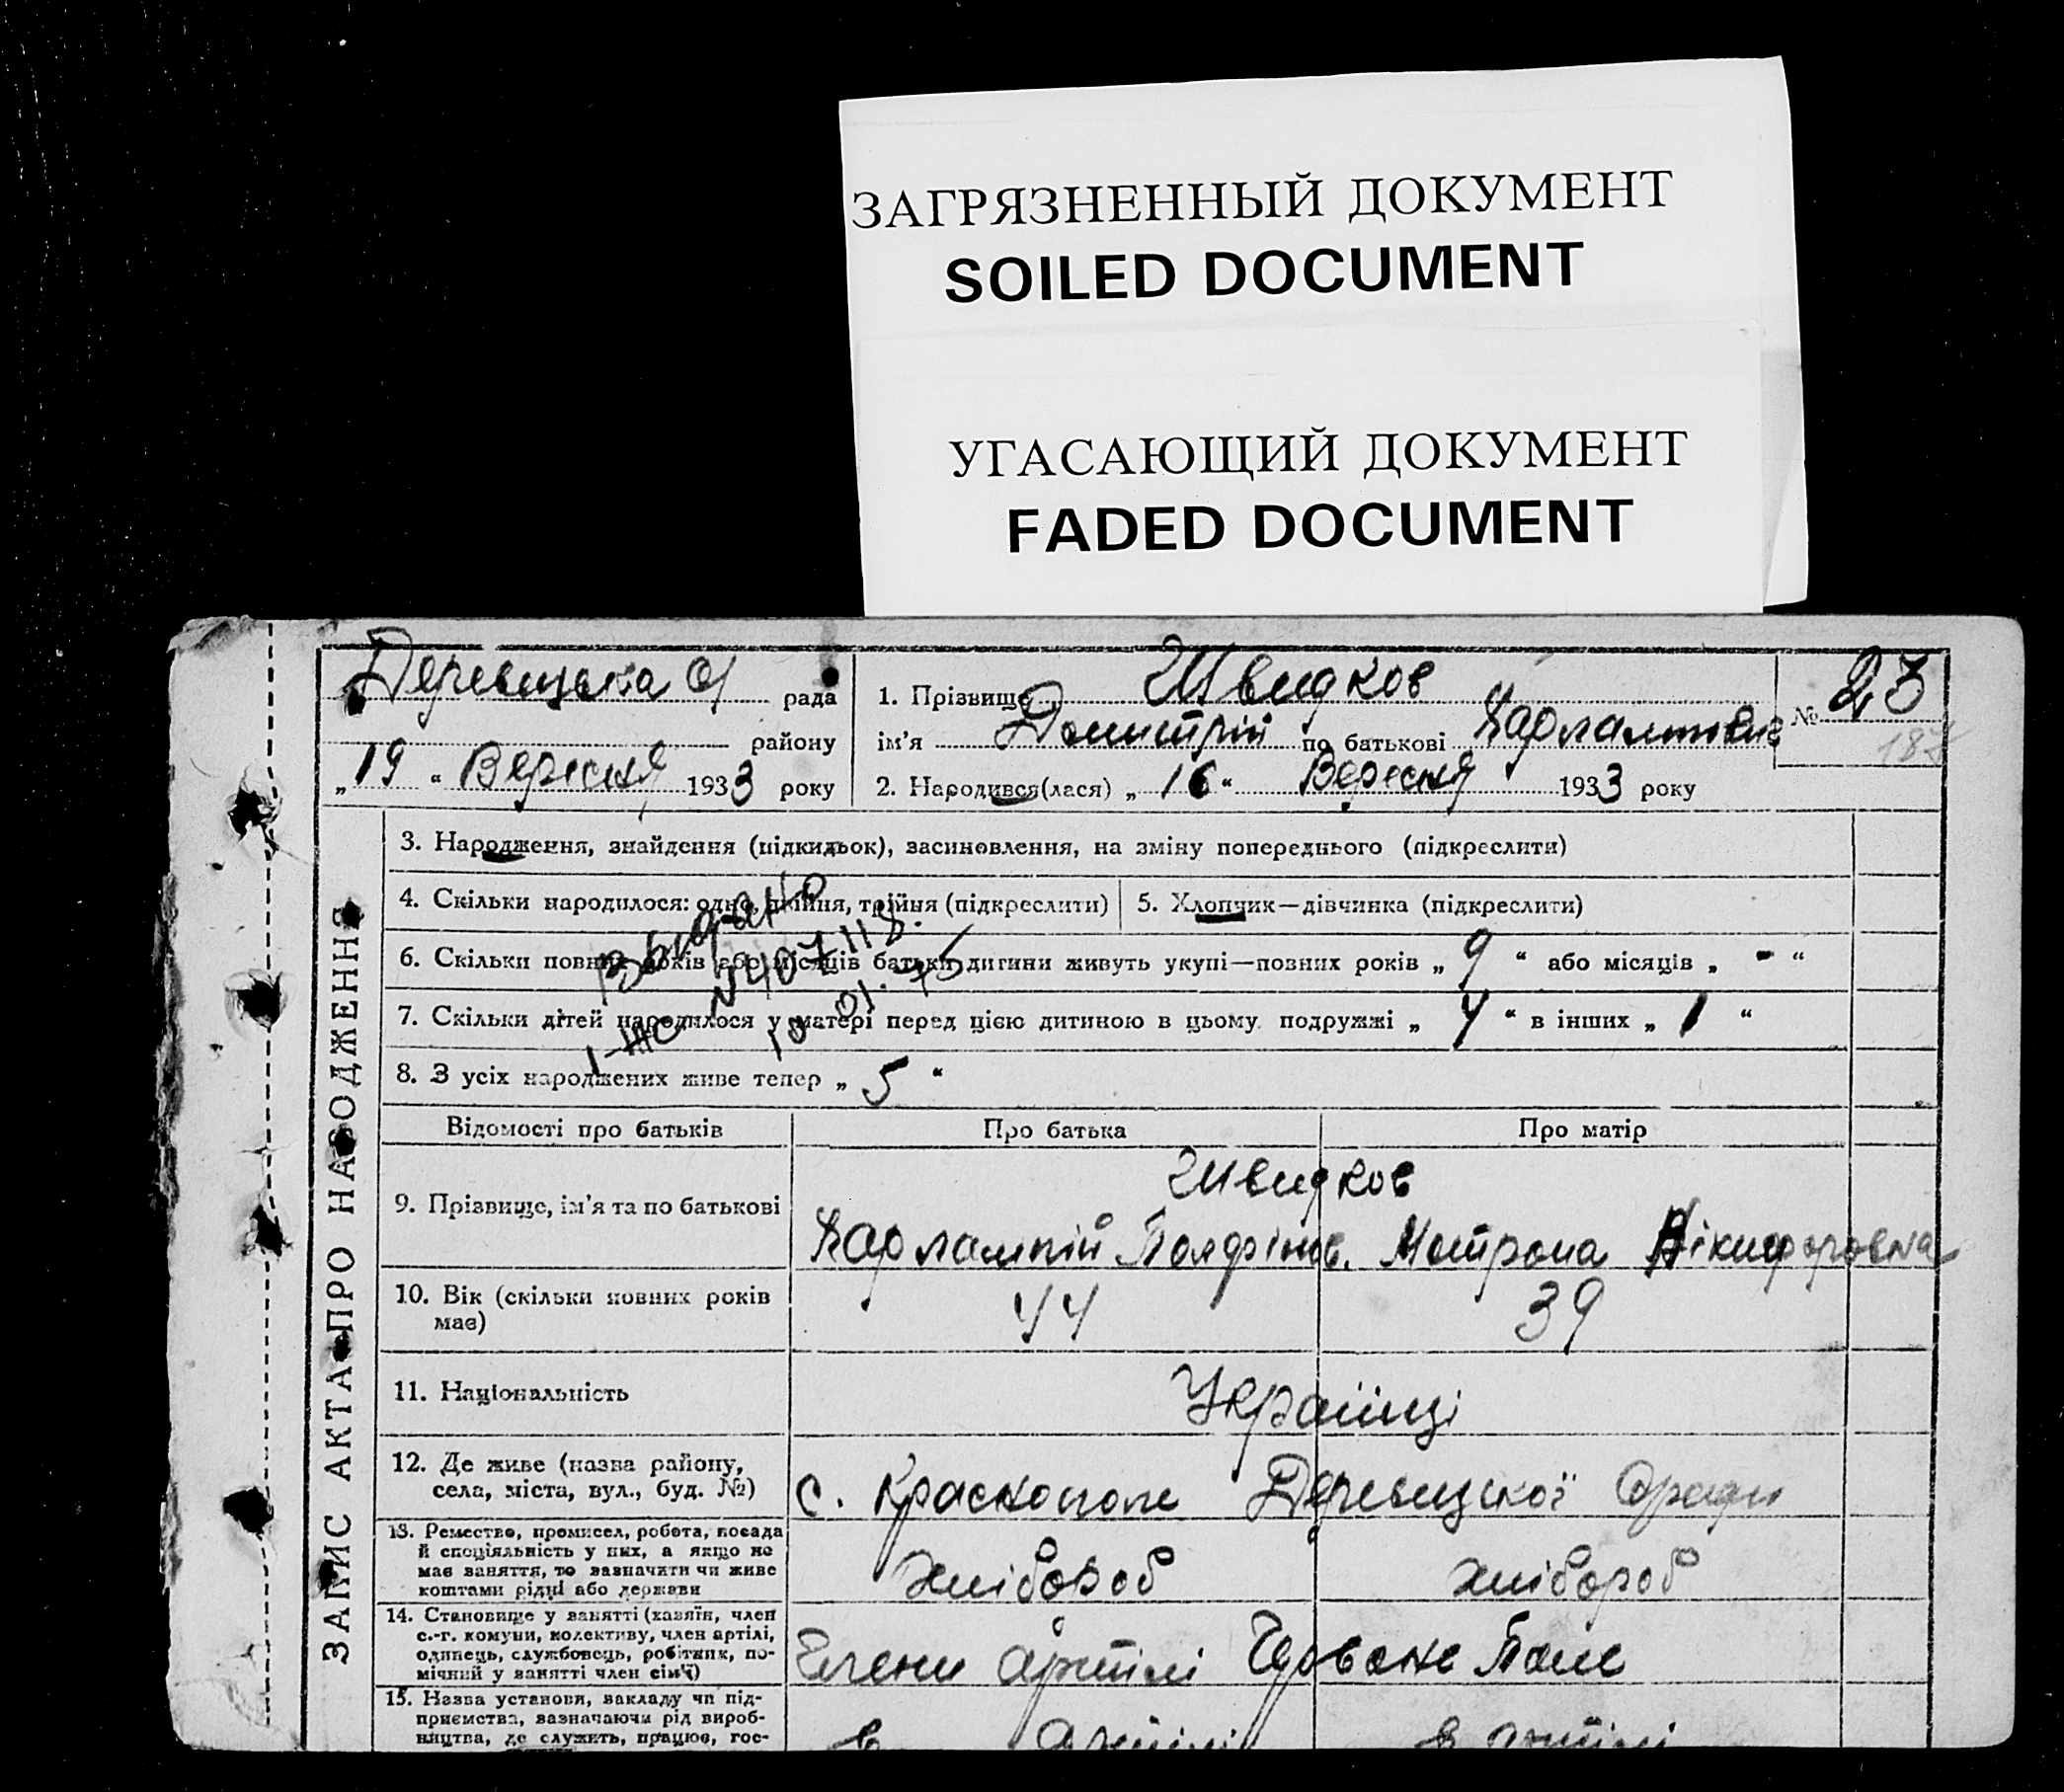 ЗАГРЯЗНЕННЫЙ ДОКУМЕНТ
SOILED DOCUMENT
УГАСАЮЩИЙ ДОКУМЕНТ
FADED DOCUMENT
Деревецька с/ рада
району
„19“ Вересня 1933 року
1. Прізвище Швидков
ім'я Домитрій по батькові Харлампиевич
№ 23
187
2. Народився(лася) „16“ Вересня 1933 року
ЗАПИС АКТА ПРО НАРОДЖЕННЯ
3. Народження, знайдення (підкидьок), засиновлення, на зміну попереднього (підкреслити)
4. Скільки народилося: одно, двійня, трійня (підкреслити)
5. Хлопчик—дівчинка (підкреслити)
6. Скільки повних років або місяців батьки дитини живуть укупі—повних років „9“ або місяців „-“
7. Скільки дітей народилося у матері перед цією дитиною в цьому подружжі „4“ в інших „1“
8. З усіх народжених живе тепер „5“
Выдано
I-ЖС №407118.
10.01.75
Відомості про батьків
Про батька
Про матір
9. Прізвище, ім'я та по батькові
Швидков
Харлампій Мотрона Нікифоровна
10. Вік (скільки повних років
має)
44
39
11. Національність
Українці
12. Де живе (назва району,
села, міста, вул., буд. №)
с. Краснополе Деревецької с/ради
13. Ремество, промисел, робота, посада
й спеціяльність у них, а якщо не
має заняття, то зазначити чи живе
коштами рідні або держави
хлібороб
хлібороб
14. Становище у занятті (хазяїн, член
с.-г. комуни, колективу, член артілі,
одинець, службовець, робітник, по-
мічний у занятті член сім'ї)
Члени артілі Червоне Поле
15. Назва установи, закладу чи під-
приємства, зазначаючи рід вироб-
ництва, де служить, працює, гос-
в артілі
в артілі